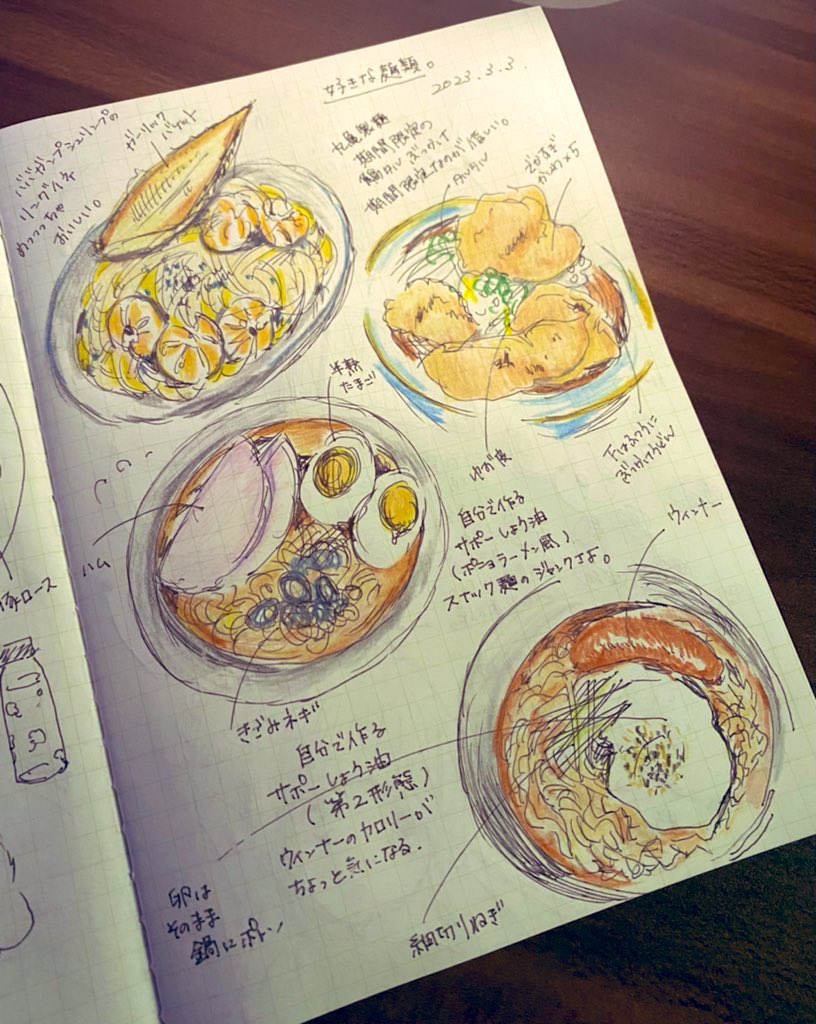 好きな麺類。
2023.3.3.
ババガンプシュリンプの
リングイネ
めっっっちゃ
おいしい。
ガーリック
バゲット
丸亀製麺
期間限定の
鶏タル ぶっかけ
期間限定なのが惜しい。
タルタル
でかすぎ
かしわ×5
ゆず皮
下はふつうに
ぶっかけうどん
半熟
たまご
ハム
きざみネギ
自分で作る
サポーしょうゆ油
(ポニョラーメン風)
スナック麺のジャンクさよ。
ウィンナー
自分で作る
サポーしょうゆ油
(第2形態)
ウィンナーのカロリーが
ちょっと気になる.
卵は
そのまま
鍋にポトン
細切りねぎ
豚ロース